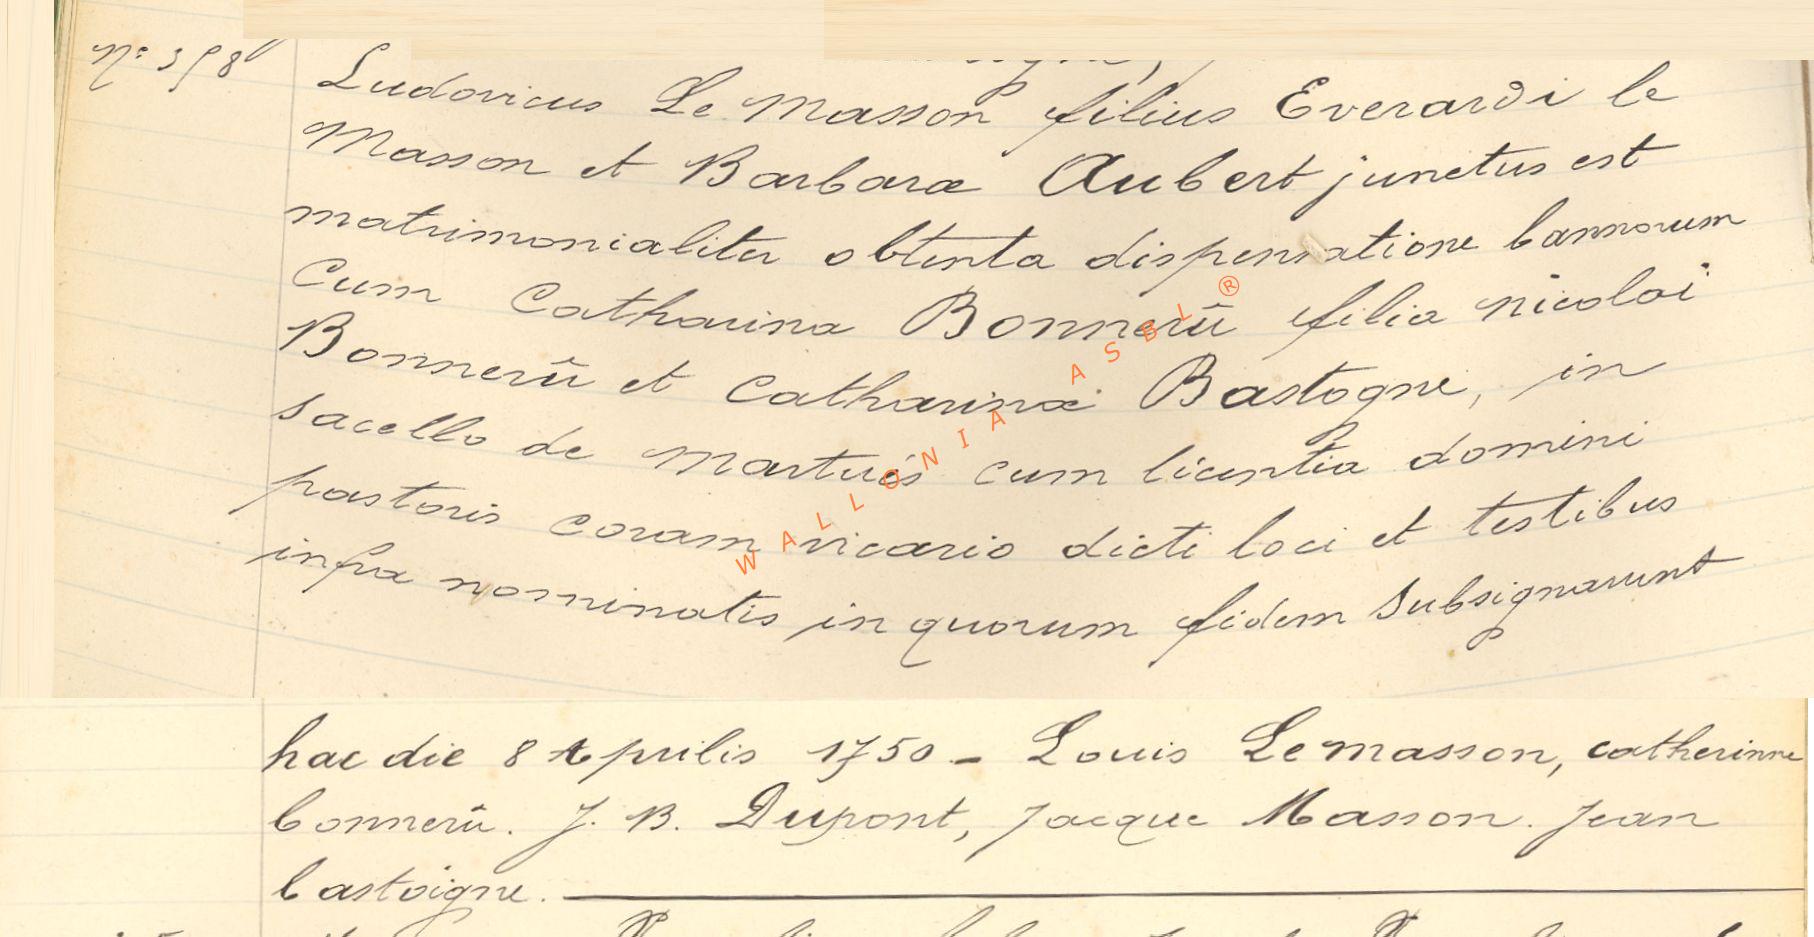 N° 398
Ludovicus Le Masson filius Everardi le
Masson et Barbaræ Aubert junctus est
matrimonialiter obtenta dispensatione bannorum
cum Catharina Bonnerû filia nicolai
Bonnerû et Catharinæ Bastogne, in
sacello de Martués cum licentia domini
pastoris coram vicario dicti loci et testibus
infra nominatis in quorum fidem subsignarunt
hac die 8 Aprilis 1750 - Louis Lemasson, catherinne
bonnerû. J. B. Dupont, Jacque Masson. Jean
bastoigne.
WALLONIA ASBL ®